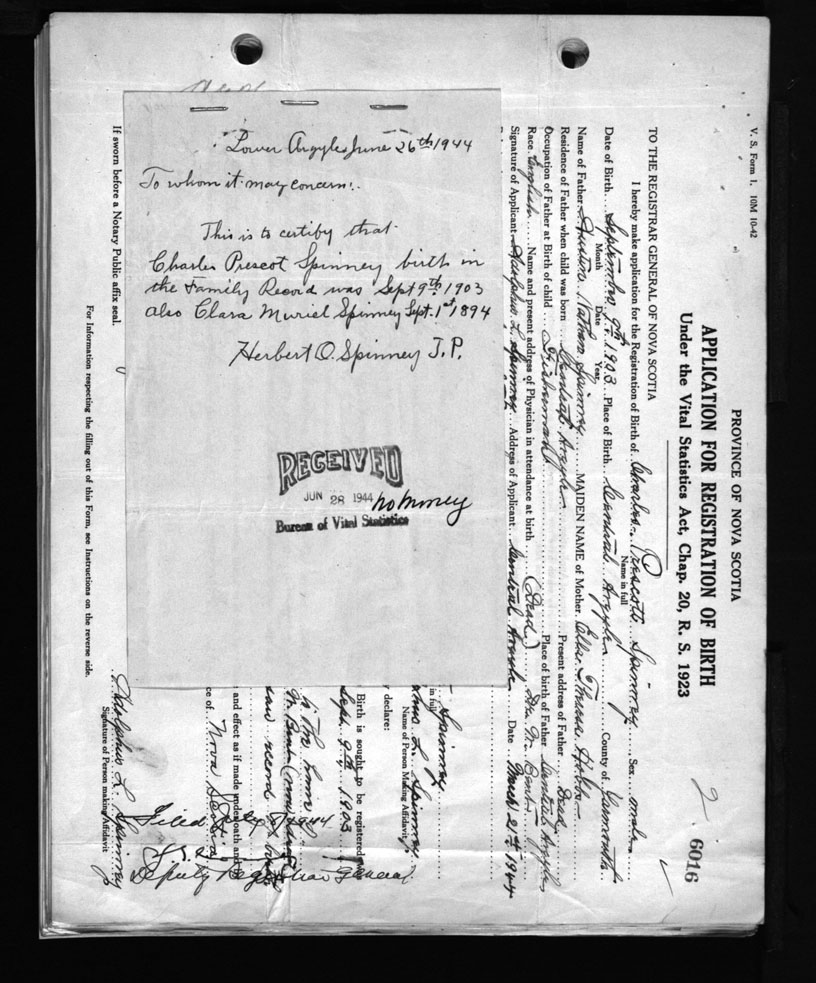 Lower Argyle June 26th 1944
To whom it may concern:.
This is to certify that
Charles Prescot Spinney birth in
the Family Record was Sept 9th 1903
also Clara Muriel Spinney Sept. 1st 1894
Herbert O. Spinney J.P.
RECEIVED
JUN 28 1944 no money
Bureau of Vital Statistics
V. S. Form 1. 10M 10-42
2 6016
PROVINCE OF NOVA SCOTIA
APPLICATION FOR REGISTRATION OF BIRTH
Under the Vital Statistics Act, Chap. 20, R. S. 1923
TO THE REGISTRAR GENERAL OF NOVA SCOTIA
I hereby make application for the Registration of Birth of Charles Prescott Spinney Sex male
Name in full
Date of Birth September 9th 1903 Place of Birth Central Argyle County of Yarmouth
Month Date Year
Name of Father Nathan Spinney MAIDEN NAME of Mother Hobbs
Residence of Father when child was born Central Argyle Present address of Father Dead
Occupation of Father at Birth of child Fisherman Place of birth of Father Central Argyle
Race English Name and present address of Physician in attendance at birth (Dead)
Signature of Applicant Adolphus L. Spinney Address of Applicant Central Argyle Date March 21st 1944
Spinney
in full
L. Spinney
Name of Person Making Affidavit
declare:
Birth is sought to be registered
Sept. 9th 1903
saw record
and effect as if made under oath and
ce of Nova Scotia
Filed 1944
Deputy Registrar General
Adolphus L. Spinney
Signature of Person making Affidavit
If sworn before a Notary Public affix seal.
For Information respecting the filling out of this Form, see Instructions on the reverse side.